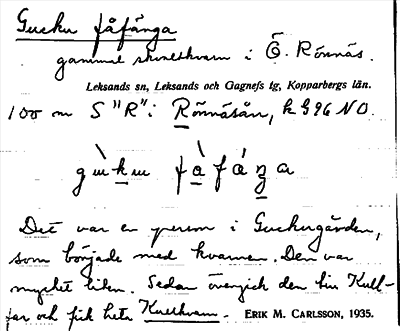 Gucku fåfänga
gammal skvaltkvarn i Ö. Rönnäs.
Leksands sn, Leksands och Gagnefs tg, Kopparbergs län.
100 m S "R" i Rönnäsån, k G96 NO.
Det var en person i Guckugården,
som började med kvarnen. Den var
mycket liten. Sedan övergick den till Kull-
far och fick heta Kullkvarn. ERIK M. CARLSSON, 1935.